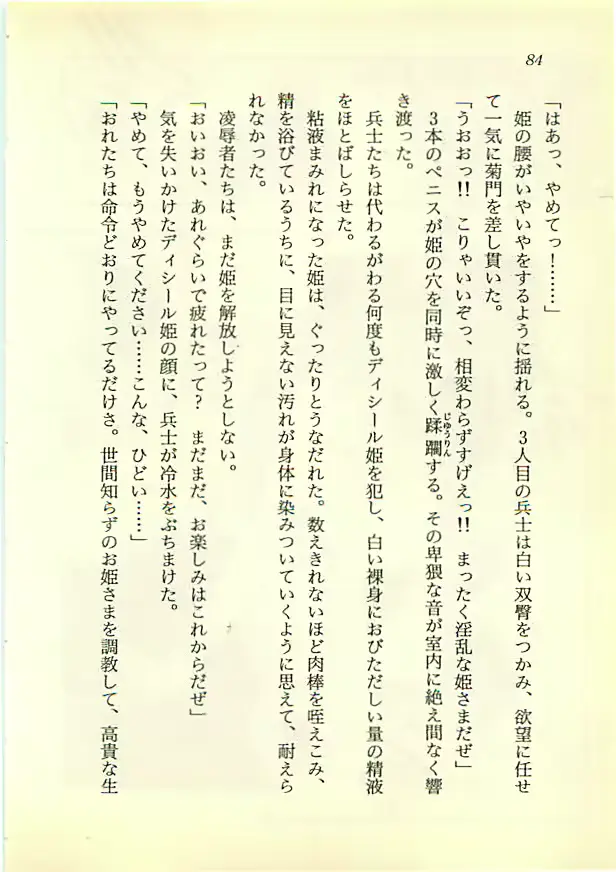 84
「はあっ、やめてっ！………」
姫の腰がいやいやをするように揺れる。3人目の兵士は白い双臀をつかみ、欲望に任せ
て一気に菊門を差し貫いた。
「うおおっ!!　こりゃいいぞっ、相変わらずすげえっ!!　まったく淫乱な姫さまだぜ」
3本のペニスが姫の穴を同時に激しく蹂躙する。その卑猥な音が室内に絶え間なく響
じゅうりん
き渡った。
兵士たちは代わるがわる何度もディシール姫を犯し、白い裸身におびただしい量の精液
をほとばしらせた。
粘液まみれになった姫は、ぐったりとうなだれた。数えきれないほど肉棒を咥えこみ、
精を浴びているうちに、目に見えない汚れが身体に染みついていくように思えて、耐えら
れなかった。
凌辱者たちは、まだ姫を解放しようとしない。
「おいおい、あれぐらいで疲れたって？　まだまだ、お楽しみはこれからだぜ」
気を失いかけたディシール姫の顔に、兵士が冷水をぶちまけた。
「やめて、もうやめてください……こんな、ひどい……」
「おれたちは命令どおりにやってるだけさ。世間知らずのお姫さまを調教して、高貴な生